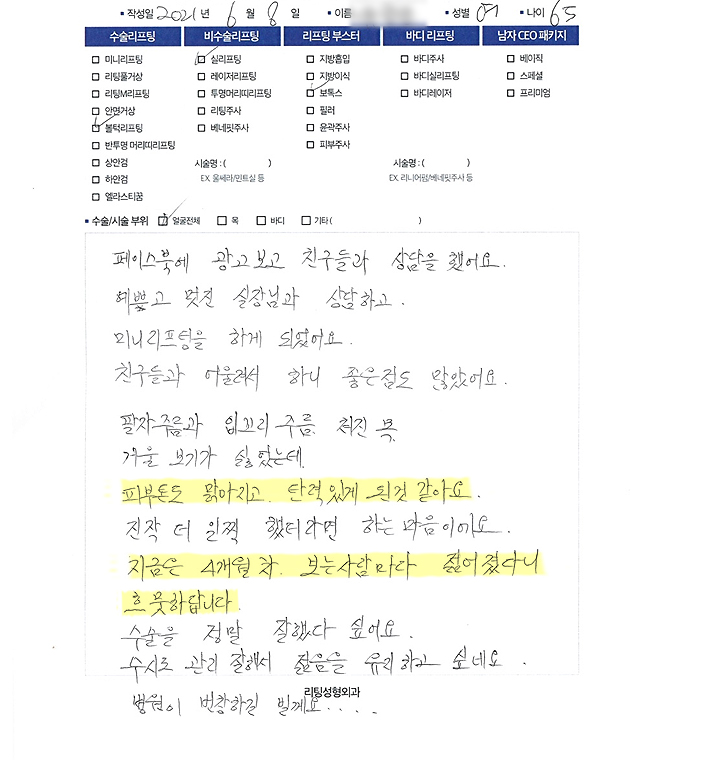 • 작성일 2021 년 6 월 8 일 • 이름 • 성별 여 • 나이 65
수술리프팅 비수술리프팅 리프팅 부스터 바디 리프팅 남자 CEO 패키지
미니리프팅 실리프팅 지방흡입 바디주사 베이직
리팅풀거상 레이저리프팅 지방이식 바디실리프팅 스페셜
리팅M리프팅 투명머리띠리프팅 보톡스 바디레이저 프리미엄
안면거상 리팅주사 필러
볼턱리프팅 베네핏주사 윤곽주사
반투명 머리띠리프팅 피부주사
상안검 시술명 : ( ) 시술명 : ( )
하안검 EX. 울쎄라/민트실 등 EX. 리니어펌/베네핏주사 등
엘라스티꿈
• 수술/시술 부위 얼굴전체 목 바디 기타 ( )
페이스북에 광고보고 친구들과 상담을 했어요.
예쁘고 멋진 실장님과 상담하고.
미니리프팅을 하게 되었어요.
친구들과 어울려서 하니 좋은점도 많았어요.
팔자주름과 입꼬리 주름. 처진 목.
거울 보기가 싫었는데.
피부톤도 맑아지고. 탄력있게 된것 같아요.
진작 더 일찍 했더라면 하는 마음이에요.
지금은 4개월 차. 보는사람마다 젊어졌다니
흐뭇하답니다.
수술을 정말 잘했다 싶어요.
수시로 관리 잘해서 젊음을 유지하고 싶네요.
리팅성형외과
병원이 번창하길 빌께요....